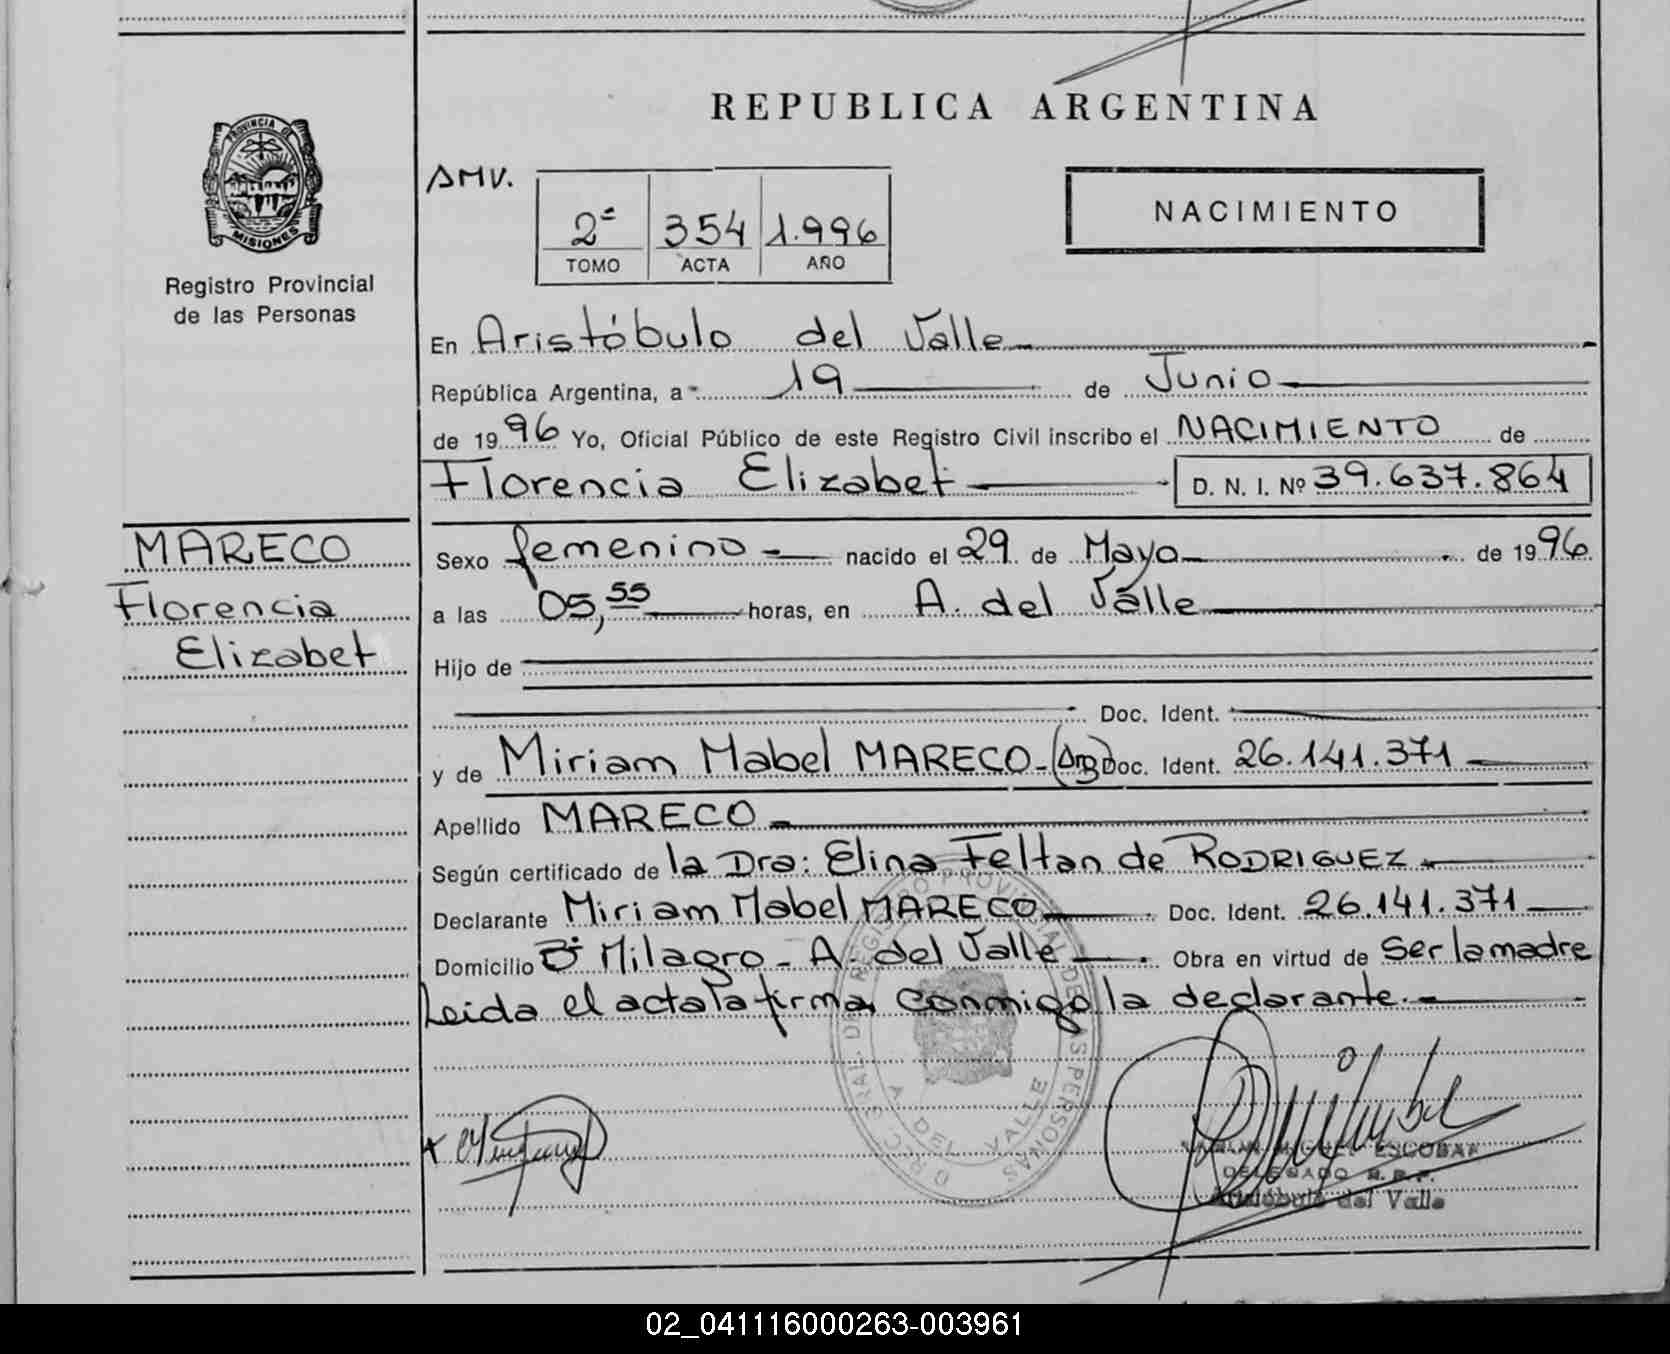 REPUBLICA ARGENTINA
PROVINCIA DE
MISIONES
Registro Provincial
de las Personas
AMV.
2º 354 1.996
TOMO ACTA AÑO
NACIMIENTO
En Aristóbulo del Valle
República Argentina, a 19 de Junio
de 1996 Yo, Oficial Público de este Registro Civil inscribo el NACIMIENTO de
Florencia Elizabet D. N. I. Nº 39.637.864
MARECO
Florencia
Elizabet
Sexo femenino nacido el 29 de Mayo de 1996
a las 05,55 horas, en A. del Valle
Hijo de
Doc. Ident.
y de Miriam Mabel MARECO-(Arg) Doc. Ident. 26.141.371
Apellido MARECO
Según certificado de la Dra: Elina Feltan de RODRIGUEZ
Declarante Miriam Mabel MARECO Doc. Ident. 26.141.371
Domicilio Bº Milagro - A. del Valle Obra en virtud de Ser la madre
Leida el acta la firma conmigo la declarante.
REGISTRO PROVINCIAL DE LAS PERSONAS
A DEL VALLE
MIGUEL ESCOBAR
DELEGADO R.P.P.
Aristóbulo del Valle
02_041116000263-003961